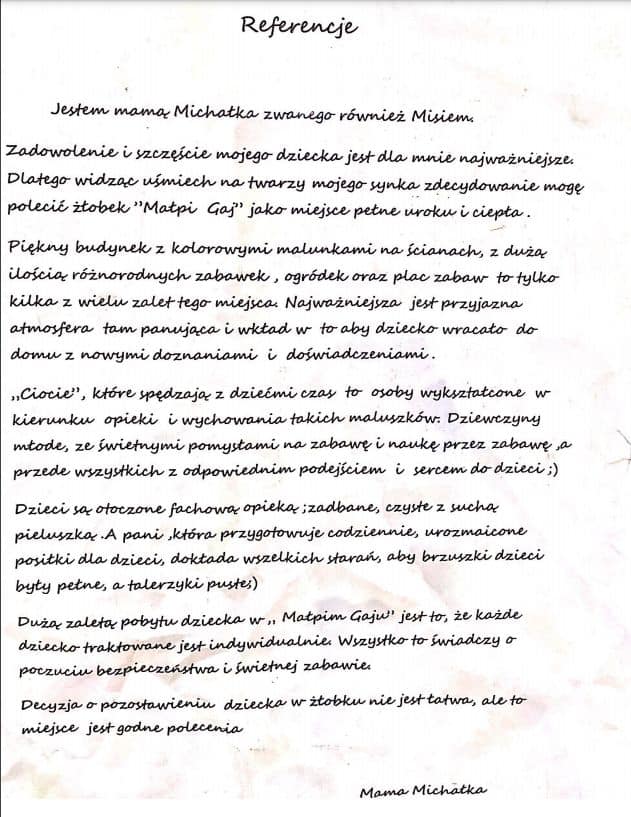 Referencje
Jestem mamą Michałka zwanego również Misiem.
Zadowolenie i szczęście mojego dziecka jest dla mnie najważniejsze.
Dlatego widząc uśmiech na twarzy mojego synka zdecydowanie mogę
polecić żłobek "Małpi Gaj" jako miejsce pełne uroku i ciepła .
Piękny budynek z kolorowymi malunkami na ścianach, z dużą
ilością różnorodnych zabawek , ogródek oraz plac zabaw to tylko
kilka z wielu zalet tego miejsca. Najważniejsza jest przyjazna
atmosfera tam panująca i wkład w to aby dziecko wracało do
domu z nowymi doznaniami i doświadczeniami .
,,Ciocie", które spędzają z dziećmi czas to osoby wykształcone w
kierunku opieki i wychowania takich maluszków. Dziewczyny
młode, ze świetnymi pomysłami na zabawę i naukę przez zabawę ,a
przede wszystkich z odpowiednim podejściem i sercem do dzieci ;)
Dzieci są otoczone fachową opieką ;zadbane, czyste z suchą
pieluszką .A pani ,która przygotowuje codziennie, urozmaicone
posiłki dla dzieci, dokłada wszelkich starań, aby brzuszki dzieci
były pełne, a talerzyki puste;)
Dużą zaletą pobytu dziecka w ,, Małpim Gaju" jest to, że każde
dziecko traktowane jest indywidualnie. Wszystko to świadczy o
poczuciu bezpieczeństwa i świetnej zabawie.
Decyzja o pozostawieniu dziecka w żłobku nie jest łatwa, ale to
miejsce jest godne polecenia
Mama Michałka